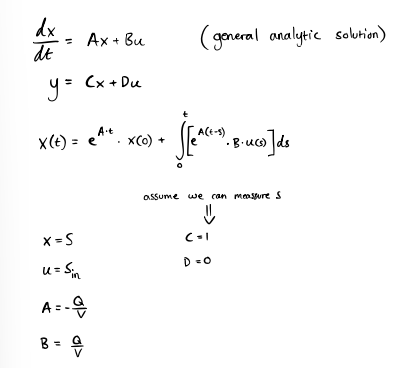 dx/dt = Ax + Bu (general analytic solution)
y = Cx + Du
x(t) = e^{A·t} · x(0) + ∫_0^t [e^{A(t-s)} · B · u(s)] ds
assume we can measure S
⇓
x = S C = 1
u = S_in D = 0
A = - Q/V
B = Q/V